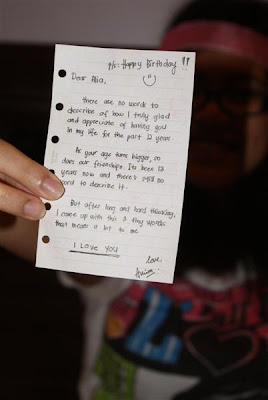 P/S: Happy Birthday !!
Dear Alia,
There are no words to
describe of how I truly glad
and appreciate of having you
in my life for the past 12 years.
As your age turns bigger, so
does our friendships. Its been 13
years now and there's still no
word to describe it.
But after long and hard thinking,
I came up with this 3 tiny words
that means a lot to me
I Love You
love,